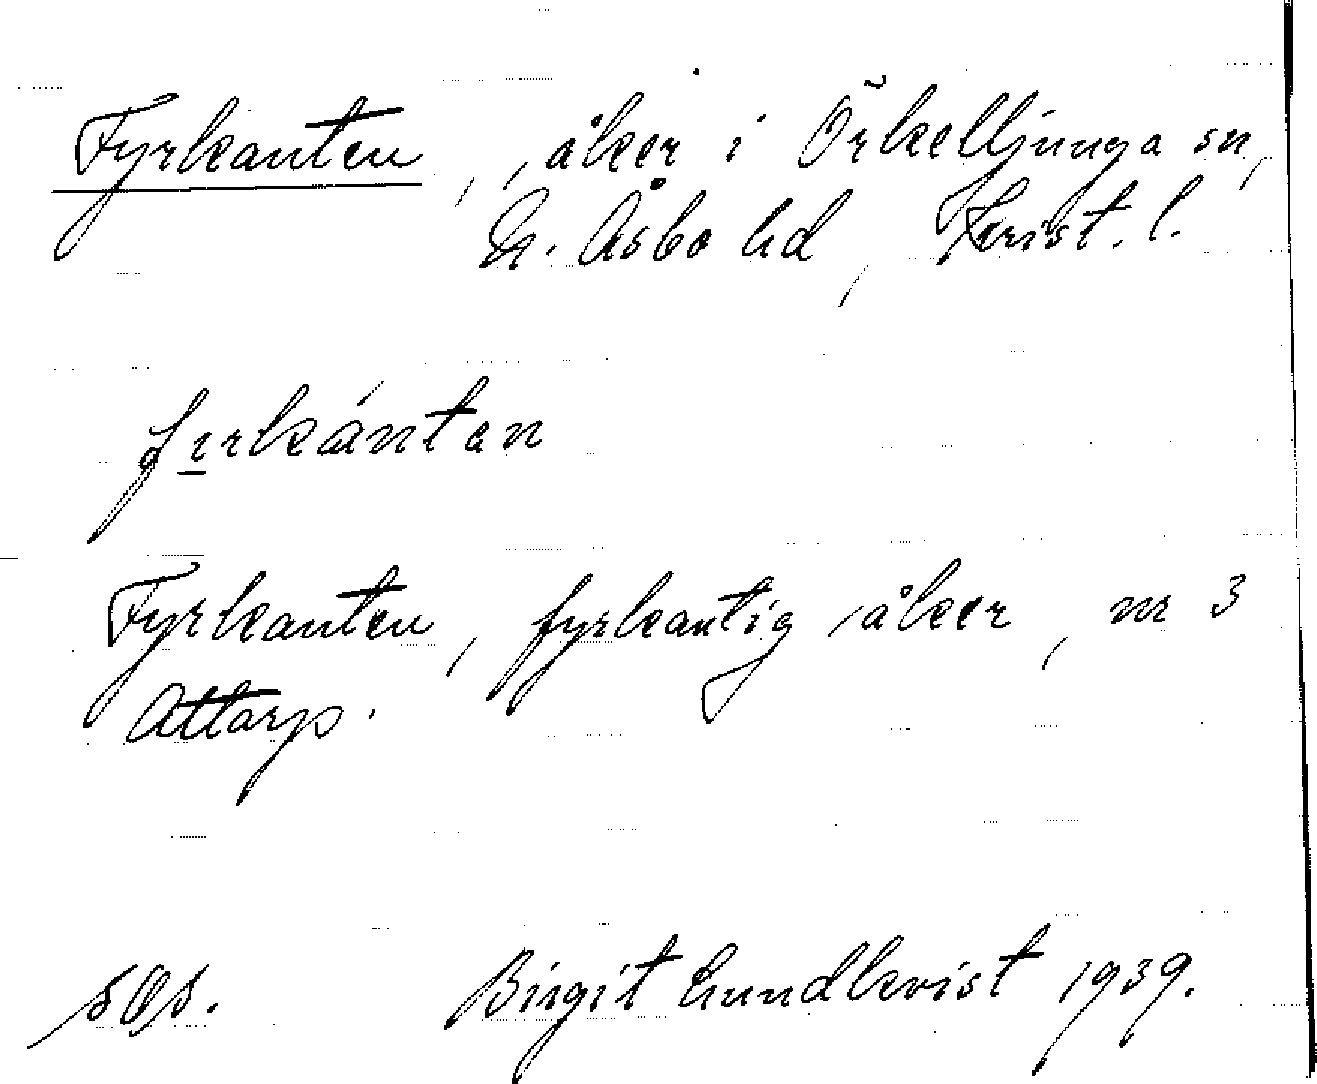 Fyrkanten, åker i Örkelljunga sn,
N. Åsbo hd, Krist. l.
Fyrkanten, fyrkantig åker, nr 3
Attarp.
Birgit Lundkvist 1939.